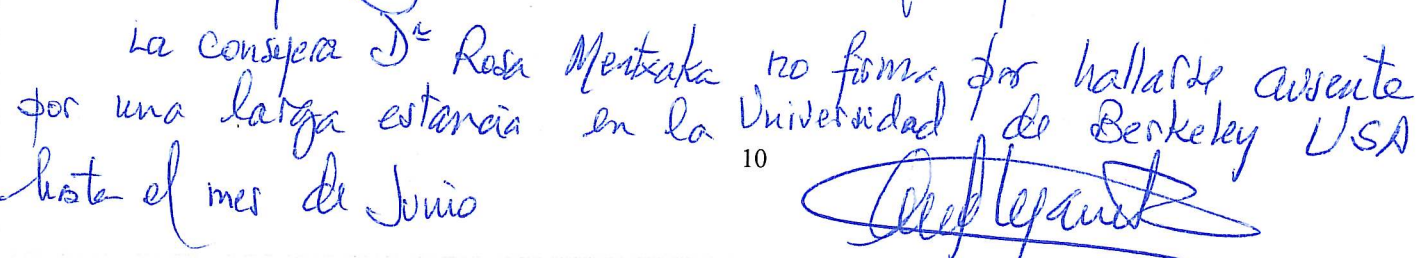 La consejera Dª Rosa Mentxaka no firma por hallarse ausente
por una larga estancia en la Universidad de Berkeley USA
10
hasta el mes de Junio